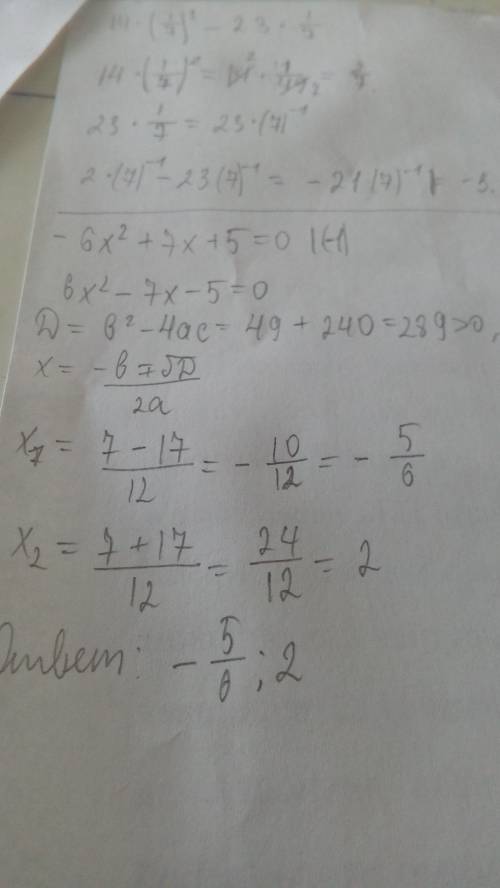 14·(1/7)² − 23·1/7
14·(1/7)² =
23·1/7 = 23·(7)⁻¹
2·(7)⁻¹ − 23(7)⁻¹ = −21(7)⁻¹ −3.
−6x²+7x+5=0 |(-1)
6x²−7x−5=0
D = b²−4ac = 49 + 240 = 289>0,
x = −b∓√D / 2a
x₁ = 7−17 / 12 = − 10/12 = − 5/6
x₂ = 7+17 / 12 = 24/12 = 2
Ответ: − 5/6 ; 2